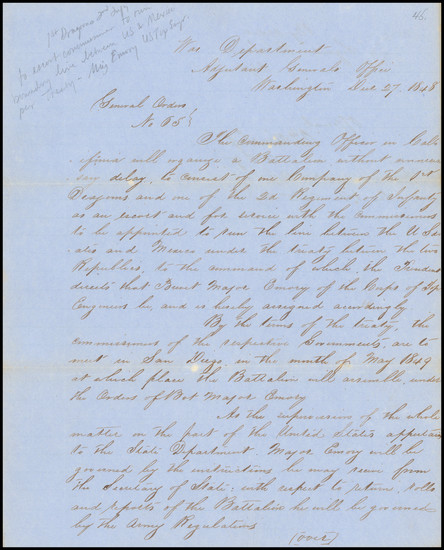 45
1st Dragoons & 2d Inf
to escort commissioners to run
boundary line between US & Mexico
per treaty - Maj Emory US Top Engr
War Department
Adjutant Generals Office
Washington Dec 27. 1848
General Orders
No 65
The Commanding Officer in Cali-
-fornia will organize a Battalion without unneces-
-sary delay, to consist of one Company of the 1st
Dragoons and one of the 2d Regiment of Infantry
as an escort and for service with the Commissioners
to be appointed to run the line between the U St-
-ates and Mexico under the treaty between the two
Republics, to the command of which, the President
directs that Brevet Major Emory of the Corps of Top
Engineers be, and is hereby assigned accordingly
By the terms of the treaty, the
commissioners of the respective Governments, are to
meet in San Diego, in the month of May 1849
at which place the Battalion will assemble, under
the Orders of Bvt Major Emory
As the supervision of the whole
matter on the part of the United States appertains
to the State Department, Major Emory will be
governed by the instructions he may receive from
the Secretary of State: with respect to returns, rolls
and reports of the Battalion he will be governed
by the Army Regulations
(over)